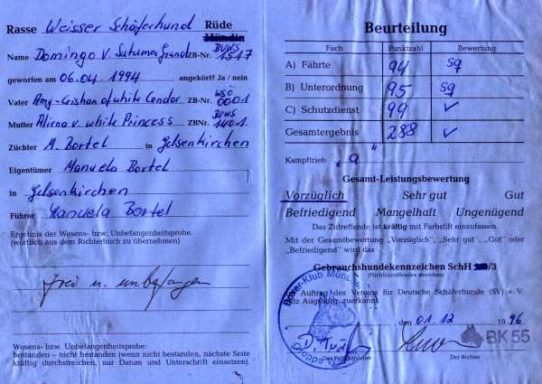 Rasse Weisser Schäferhund Rüde
Hündin
Name Domingo v. ZB-Nr. BVWS 1517
geworfen am 06.04.1994 angekört? Ja / nein
Vater of white Condor ZB-Nr. 0001
Mutter Aliena v. white Princess ZBNr. BVWS 1401
Züchter M. Bortel in Gelsenkirchen
Eigentümer Manuela Bortel
in Gelsenkirchen
Führer Manuela Bortel
Ergebnis der Wesens- bzw. Unbefangenheitsprobe.
(wörtlich aus dem Richterbuch zu übernehmen)
frei u. unbefangen
Wesens- bzw. Unbefangenheitsprobe:
bestanden – nicht bestanden (wenn nicht bestanden, nächste Seite
kräftig durchstreichen, nur Datum und Unterschrift einsetzen).
Beurteilung
Fach Punktzahl Bewertung
A) Fährte 94 sg
B) Unterordnung 95 sg
C) Schutzdienst 99 v
Gesamtergebnis 288 v
Kampftrieb „a"
Gesamt-Leistungsbewertung
Vorzüglich Sehr gut Gut
Befriedigend Mangelhaft Ungenügend
Das Zutreffende ist kräftig mit Farbstift einzufassen.
Mit der Gesamtbewertung „Vorzüglich", „Sehr gut", „Gut" oder
„Befriedigend" wird das
Gebrauchshundekennzeichen SchH /3
(Nichtzutreffendes streichen)
Auftrag des Vereins für Deutsche Schäferhunde (SV) e. V.
zuerkannt.
Boxer Klub
den 01.12 1996
Der Richter
BK 55